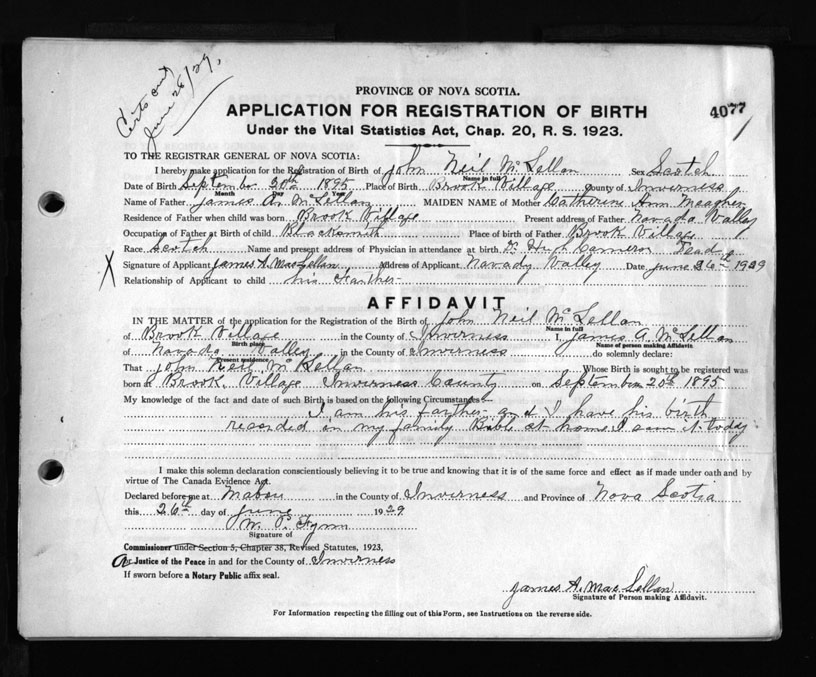 Certs out
June 28/29.
PROVINCE OF NOVA SCOTIA.
APPLICATION FOR REGISTRATION OF BIRTH
4077
Under the Vital Statistics Act, Chap. 20, R. S. 1923.
TO THE REGISTRAR GENERAL OF NOVA SCOTIA:
I hereby make application for the Registration of Birth of John Neil McLellan Sex Scotch
Name in full
Date of Birth September 20th 1895 Place of Birth Brook Village County of Inverness
Month Day Year
Name of Father James A. McLellan MAIDEN NAME of Mother Catherine Ann Meagher
Residence of Father when child was born Brook Village Present address of Father Navada Valley
Occupation of Father at Birth of child Blacksmith Place of birth of Father Brook Village
Race Scotch Name and present address of Physician in attendance at birth Dr Hugh Cameron Dead
X Signature of Applicant James A. MacLellan Address of Applicant Navady Valley Date June 26th 1929
Relationship of Applicant to child his Farther
AFFIDAVIT
IN THE MATTER of the application for the Registration of the Birth of John Neil McLellan
Name in full
of Brook Village in the County of Inverness I, James A. McLellan
Birth place Name of person making Affidavit
of Navada Valley in the County of Inverness do solemnly declare:
Present residence
That John Neil McLellan Whose Birth is sought to be registered was
born at Brook Village Inverness County on September 20th 1895
My knowledge of the fact and date of such Birth is based on the following Circumstances:
I am his farther and I have his birth
recorded in my family Bible at home I saw it today
I make this solemn declaration conscientiously believing it to be true and knowing that it is of the same force and effect as if made under oath and by
virtue of The Canada Evidence Act.
Declared before me at Mabou in the County of Inverness and Province of Nova Scotia
this 26th day of June 1929
W. P. Flynn
Signature of
Commissioner under Section 5, Chapter 38, Revised Statutes, 1923,
Or Justice of the Peace in and for the County of Inverness
If sworn before a Notary Public affix seal.
James A. MacLellan
Signature of Person making Affidavit.
For Information respecting the filling out of this Form, see Instructions on the reverse side.